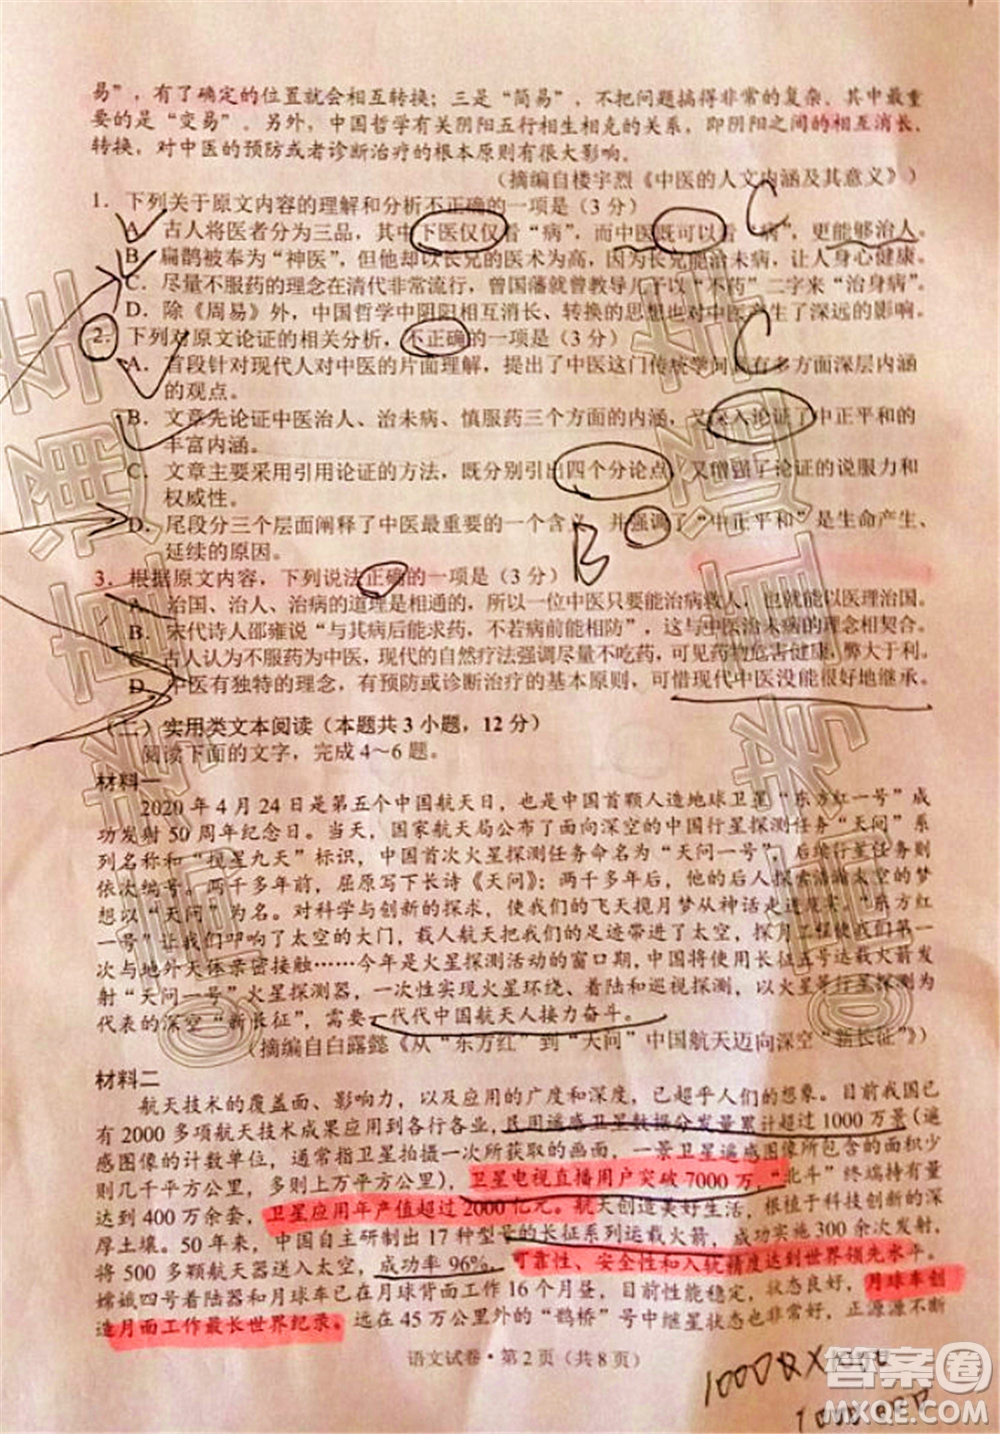 易”，有了确定的位置就会相互转换；三是“简易”，不把问题搞得非常的复杂。其中最重
要的是“变易”。另外，中国哲学有关阴阳五行相生相克的关系，即阴阳之间的相互消长、
转换，对中医的预防或者诊断治疗的根本原则有很大影响。
（摘编自楼宇烈《中医的人文内涵及其意义》）
1．下列关于原文内容的理解和分析不正确的一项是（3 分）
C
A．古人将医者分为三品，其中下医仅仅看“病”，而中医既可以看“病”，更能够治人。
B．扁鹊被奉为“神医”，但他却以长兄的医术为高，因为长兄能治未病，让人身心健康。
C．尽量不服药的理念在清代非常流行，曾国藩就曾教导儿子以“不药”二字来“治身病”。
D．除《周易》外，中国哲学中阴阳相互消长、转换的思想也对中医产生了深远的影响。
2．下列对原文论证的相关分析，不正确的一项是（3 分）
C
A．首段针对现代人对中医的片面理解，提出了中医这门传统学问具有多方面深层内涵
的观点。
B．文章先论证中医治人、治未病、慎服药三个方面的内涵，又深入论证了中正平和的
丰富内涵。
C．文章主要采用引用论证的方法，既分别引出四个分论点，又增强了论证的说服力和
权威性。
D．尾段分三个层面阐释了中医最重要的一个含义，并强调了“中正平和”是生命产生、
延续的原因。
B
3．根据原文内容，下列说法正确的一项是（3 分）
A．治国、治人、治病的道理是相通的，所以一位中医只要能治病救人，也就能以医理治国。
B．宋代诗人邵雍说“与其病后能求药，不若病前能相防”，这与中医治未病的理念相契合。
C．古人认为不服药为中医，现代的自然疗法强调尽量不吃药，可见药物危害健康，弊大于利。
D．中医有独特的理念，有预防或诊断治疗的基本原则，可惜现代中医没能很好地继承。
（二）实用类文本阅读（本题共 3 小题，12 分）
阅读下面的文字，完成 4～6 题。
材料一
2020 年 4 月 24 日是第五个中国航天日，也是中国首颗人造地球卫星“东方红一号”成
功发射 50 周年纪念日。当天，国家航天局公布了面向深空的中国行星探测任务“天问”系
列名称和“揽星九天”标识，中国首次火星探测任务命名为“天问一号”，后续行星任务
依次编号。两千多年前，屈原写下长诗《天问》；两千多年后，后人探索浩瀚太空的梦
想以“天问”为名。对科学与创新的探求，使我们的飞天揽月梦从神话走进现实，“东方红
一号”让我们叩响了太空的大门，载人航天见证了中国人的足迹带进了太空，探月工程使我们第一
次与地外天体亲密接触……今年是火星探测活动的窗口期，中国将使用长征五号运载火箭发
射“天问一号”火星探测器，一次性实现火星环绕、着陆和巡视探测，以火星探测任务为
代表的深空“新长征”，需要一代代中国航天人接力奋斗。
（摘编自白露懿《从“东方红”到“天问”中国航天迈向深空“新长征”》）
材料二
航天技术的覆盖面、影响力，以及应用的广度和深度，已超乎人们的想象。目前我国已
有 2000 多项航天技术成果应用到各行各业，民用遥感卫星数据分发量累计超过 1000 万景（遥
感图像的计数单位，通常指卫星拍摄一次所获取的画面，一景卫星遥感图像所包含的面积少
则几千平方公里，多则上万平方公里），卫星电视直播用户突破 7000 万，“北斗”终端持有量
达到 400 万余套，卫星应用年产值超过 2000 亿元。航天创造美好生活，根植于科技创新的深
厚土壤。50 年来，中国自主研制出 17 种型号的长征系列运载火箭，成功实施 300 余次发射，
将 500 多颗航天器送入太空，成功率 96%，可靠性、安全性和入轨精度达到世界领先水平。
嫦娥四号着陆器和月球车已在月球背面工作 16 个月昼，目前性能稳定，状态良好，月球车创
造月面工作最长世界纪录。远在 45 万公里外的“鹊桥”号中继星状态也非常好，正源源不断
语文试卷・第 2 页（共 8 页）
答案圈
MXQE.COM